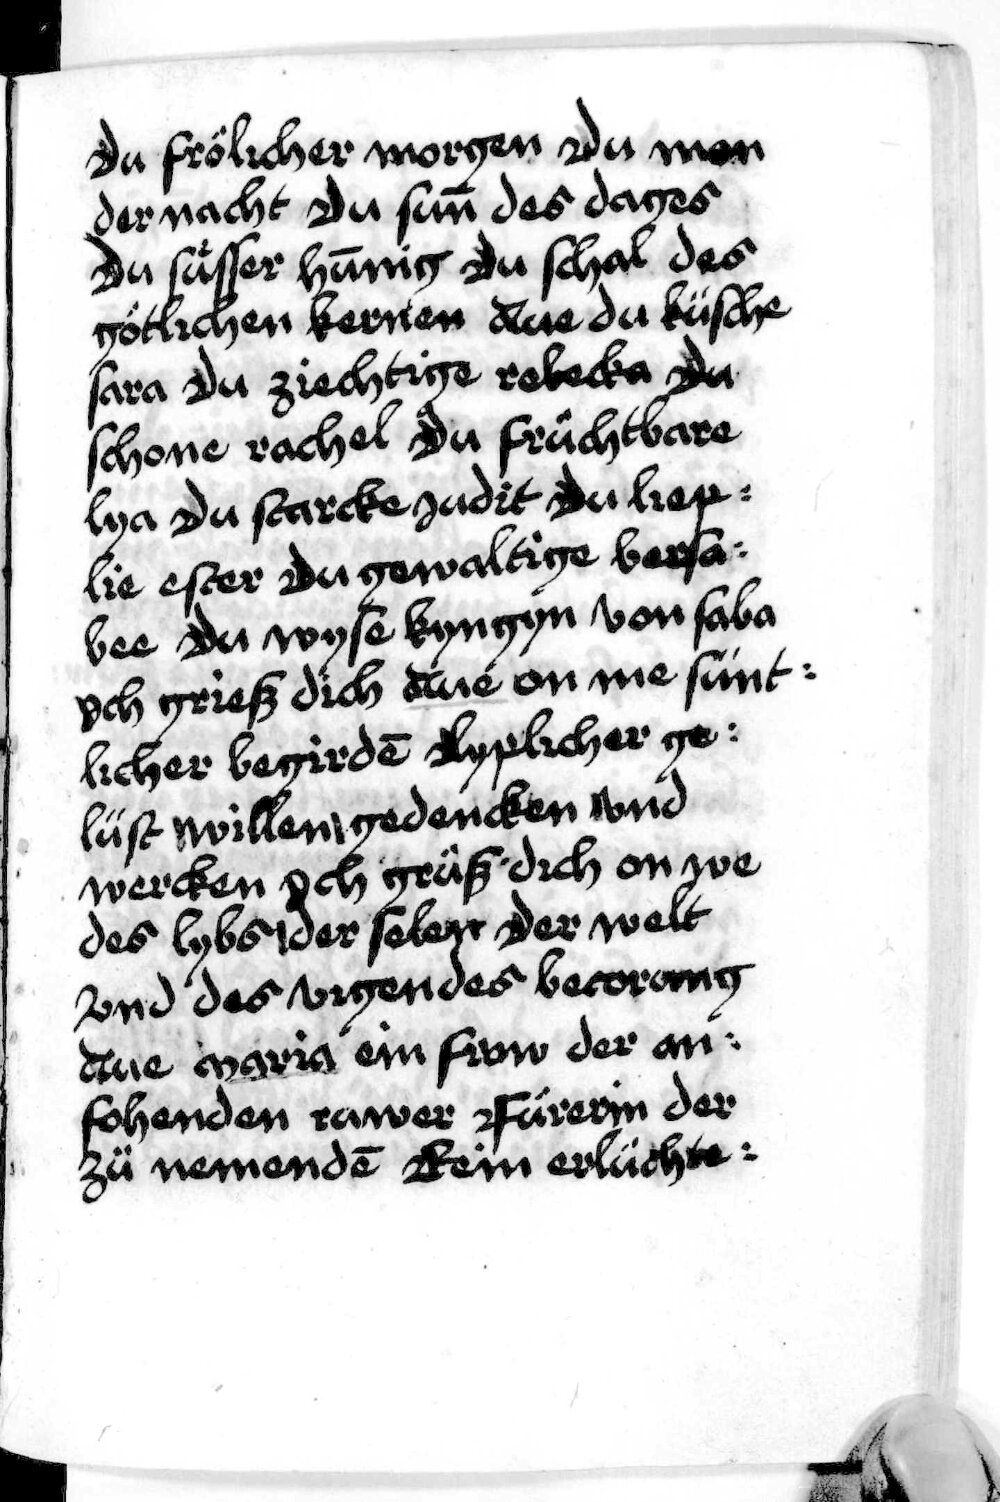 Du frölicher morgen Du mon
der nacht Du sun̄ des dages
Du süsser hūnig Du schal des
götlichen kernen Aue du küsche
sara Du ziechtige rebecka Du
schone rachel Du früchtbare
lya Du starcke Judit Du liep:
lie ester Du gewaltige bersa:
bee Du wyse kyngyn von saba
Ych grieß dich Aue on me sünt:
licher begirdē Lyplicher ge:
lüst willen gedencken vnd
wercken Ych grüß dich on we
des lybs der selen Der welt
Vnd des vigendes becorong
Aue maria ein frow der an:
fohenden ruwer Fürerin der
zü nemendē Rein erlüchte: